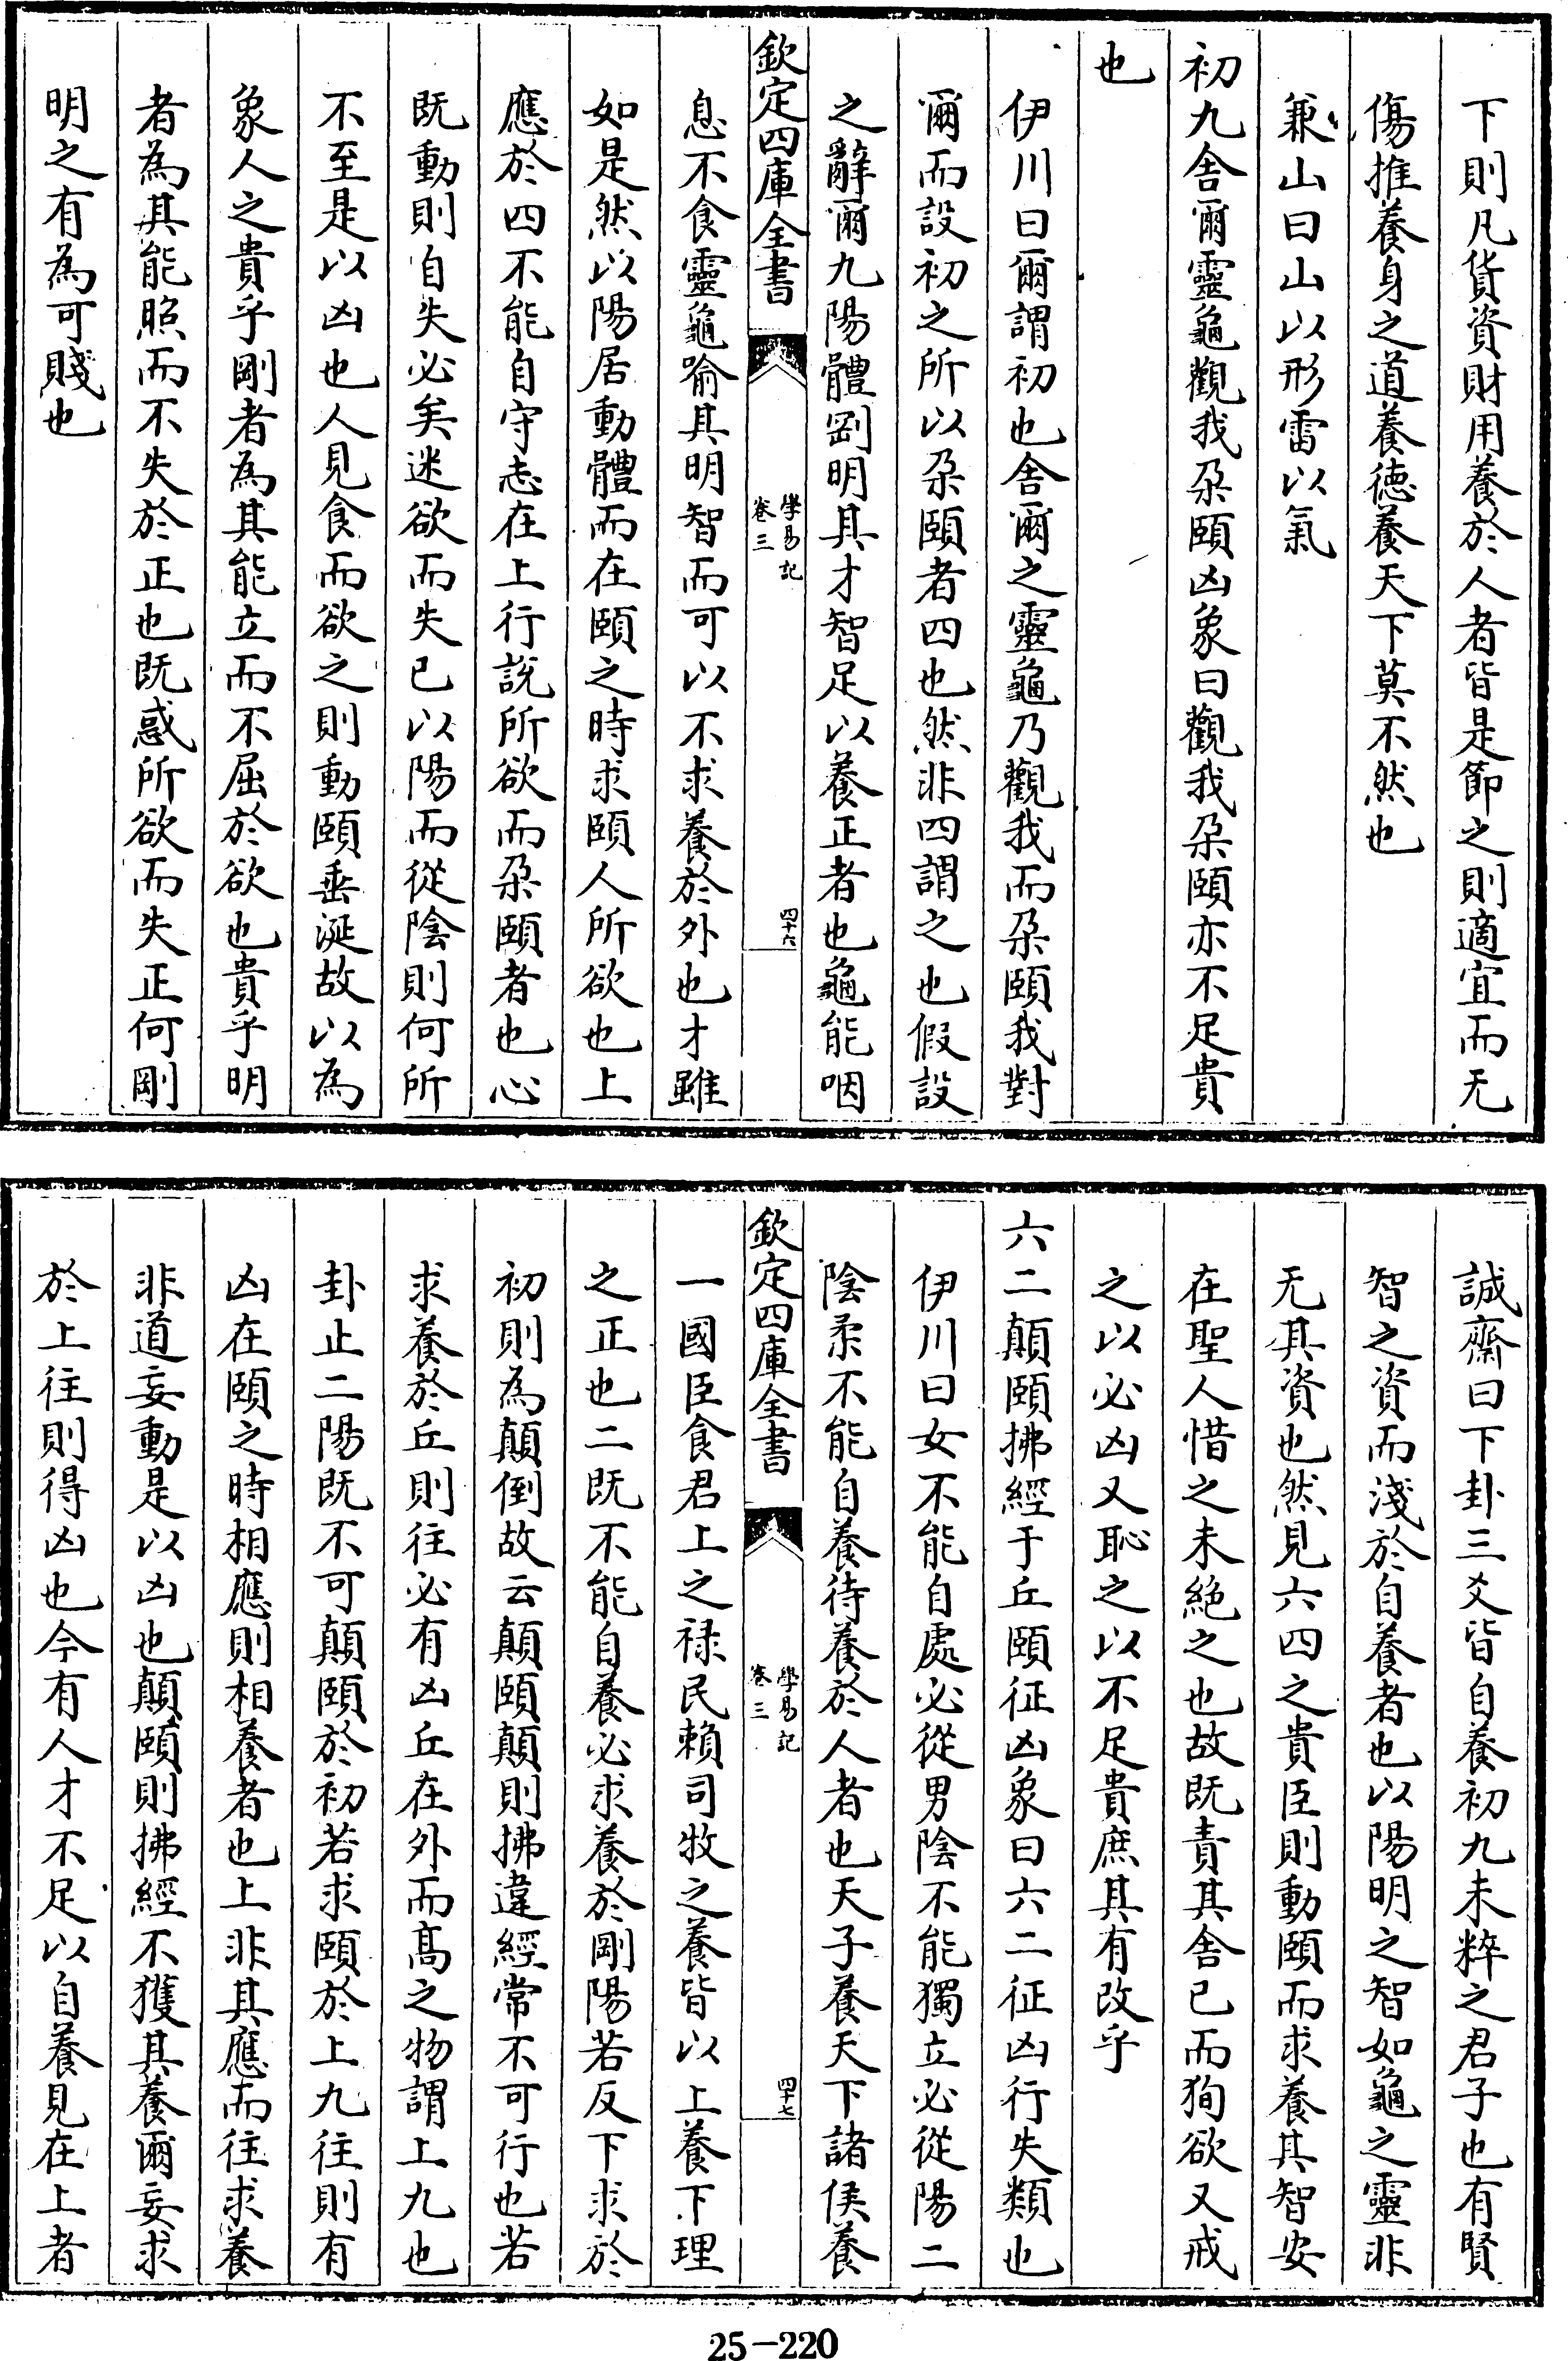 下則凡貨資財用養於人者皆是節之則適宜而无
傷推養身之道養德養天下莫不然也
兼山曰山以形雷以氣
初九舍爾靈龜觀我朶頤凶象曰觀我朶頤亦不足貴
也
伊川曰爾謂初也舍爾之靈龜乃觀我而朶頤我對
爾而設初之所以朶頤者四也然非四謂之也假設
之辭爾九陽體剛明其才智足以養正者也龜能咽
欽定四庫全書
學易記
卷三
四十六
息不食靈龜喻其明智而可以不求養於外也才雖
如是然以陽居動體而在頤之時求頤人所欲也上
應於四不能自守志在上行說所欲而朶頤者也心
既動則自失必矣迷欲而失已以陽而從陰則何所
不至是以凶也人見食而欲之則動頤垂涎故以為
象人之貴乎剛者為其能立而不屈於欲也貴乎明
者為其能照而不失於正也既惑所欲而失正何剛
明之有為可賤也
誠齋曰下卦三爻皆自養初九未粹之君子也有賢
智之資而淺於自養者也以陽明之智如龜之靈非
无其資也然見六四之貴臣則動頤而求養其智安
在聖人惜之未絶之也故既責其舍已而狥欲又戒
之以必凶又恥之以不足貴庶其有改乎
六二顛頤拂經于丘頤征凶象曰六二征凶行失類也
伊川曰女不能自處必從男陰不能獨立必從陽二
陰柔不能自養待養於人者也天子養天下諸侯養
欽定四庫全書
學易記
卷三
四十七
一國臣食君上之祿民賴司牧之養皆以上養下理
之正也二既不能自養必求養於剛陽若反下求於
初則為顛倒故云顛頤顛則拂違經常不可行也若
求養於丘則往必有凶丘在外而髙之物謂上九也
卦止二陽既不可顛頤於初若求頤於上九往則有
凶在頤之時相應則相養者也上非其應而往求養
非道妄動是以凶也顛頤則拂經不獲其養爾妄求
於上往則得凶也今有人才不足以自養見在上者
25-220